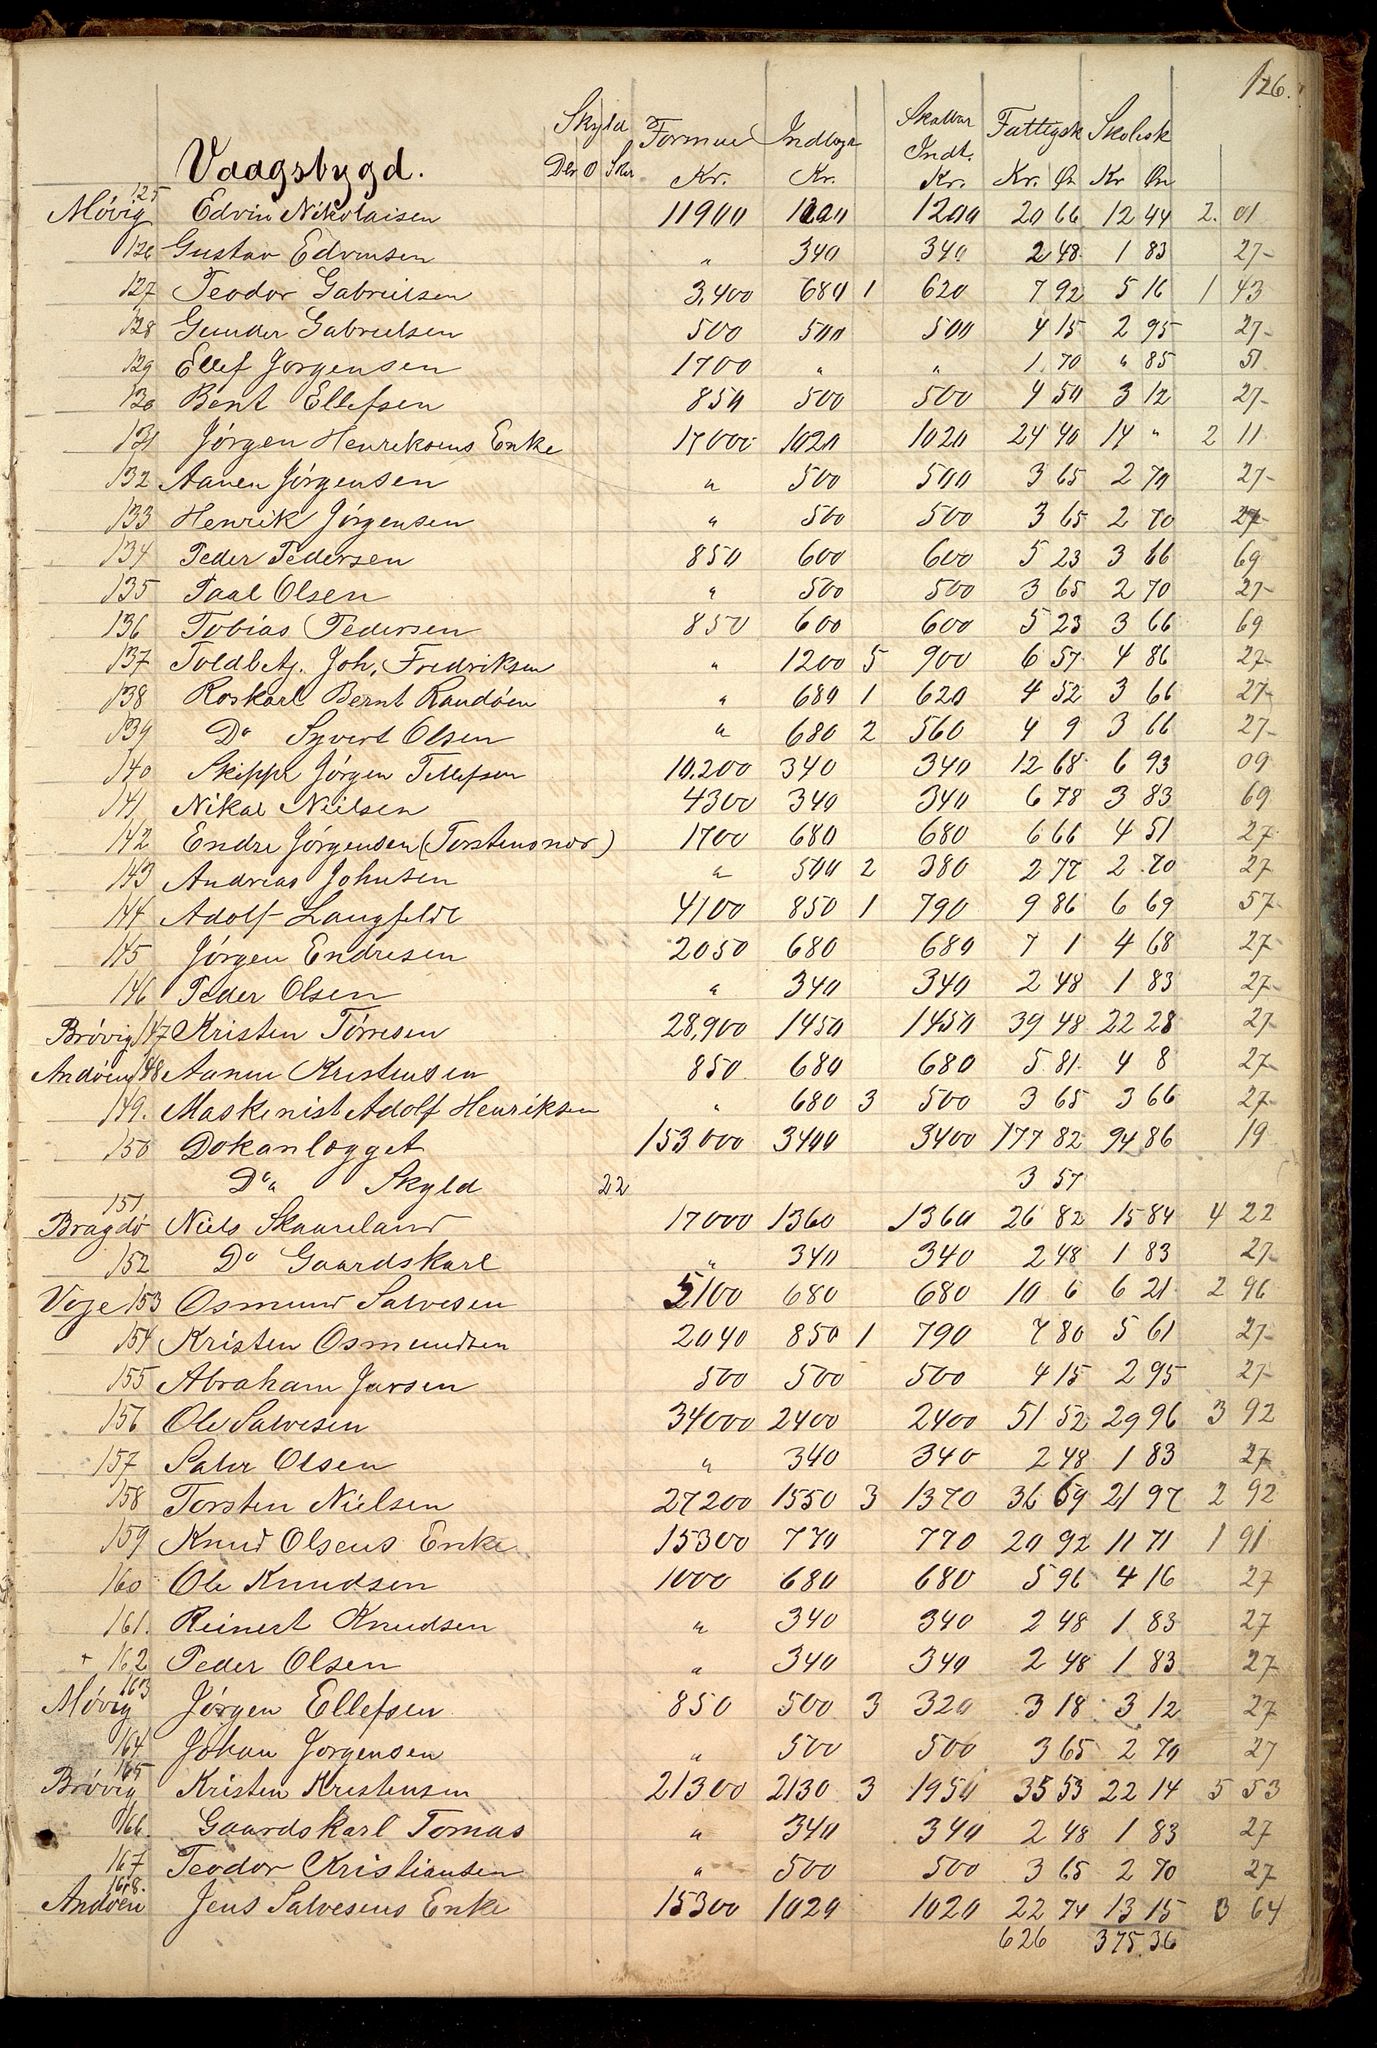 126.
Skyld Formue Indtægt Skattbar Indt. Fattigsk Skolesk
Vaagsbygd. Dlr O Sk Kr. Kr. Kr. Kr. Ør Kr Ør
Møvig 125 Edvin Nikolaisen 11900 1200 1200 20 66 12 44 2. 01
126 Gustav Edvinsen " 340 340 2 48 1 83 27-
127 Teodor Gabrielsen 3,400 680 1 620 7 92 5 16 1 43
128 Gunder Gabrielsen 500 500 500 4 15 2 95 27-
129 Ellef Jørgensen 1700 " " 1 70 " 85 51
130 Bent Ellefsen 850 500 500 4 50 3 12 27-
131 Jørgen Henriksens Enke 17000 1020 1020 24 40 14 " 2 11
132 Aanen Jørgensen " 500 500 3 65 2 70 27-
133 Henrik Jørgensen " 500 500 3 65 2 70 27-
134 Peder Pedersen 850 600 600 5 23 3 66 69
135 Paal Olsen " 500 500 3 65 2 70 27-
136 Tobias Pedersen 850 600 600 5 23 3 66 69
137 Toldbetj. Joh. Fredriksen " 1200 5 900 6 57 4 86 27-
138 Roskarl Bernt Randøen " 680 1 620 4 52 3 66 27-
139 Do Syvert Olsen " 680 2 560 4 9 3 66 27-
140 Skippr Jørgen Tellefsen 10,200 340 340 12 68 6 93 09
141 Nikal Nielsen 4300 340 340 6 78 3 83 69
142 Endre Jørgensen (Torstensnes) 1700 680 680 6 66 4 51 27
143 Andreas Johnsen " 500 2 380 2 77 2 70 27
144 Adolf Langfeldt 4100 850 1 790 9 86 6 69 57-
145 Jørgen Endresen 2050 680 680 7 1 4 68 27-
146 Peder Olsen " 340 340 2 48 1 83 27-
Brøvig 147 Kristen Tørresen 28,900 1450 1450 39 48 22 28 27-
Andøen 148 Aanen Kristensen 850 680 680 5 81 4 8 27-
149. Maskenist Adolf Henriksen " 680 3 500 3 65 3 66 27-
150 Dokanlægget 153000 3400 3400 177 82 94 86 19
Do Skyld 22 3 57
Bragdø 151 Niels Skaareland 17000 1360 1360 26 82 15 84 4 22
152 Do Gaardskarl " 340 340 2 48 1 83 27-
Voje 153 Osmund Salvesen 5100 680 680 10 6 6 21 2 96
154 Kristen Osmundsen 2040 850 1 790 7 80 5 61 27-
155 Abraham Jansen 500 500 500 4 15 2 95 27-
156 Ole Salvesen 34000 2400 2400 51 52 29 96 3 92
157 Salve Olsen " 340 340 2 48 1 83 27
158 Torsten Nielsen 27200 1550 3 1370 36 69 21 97 2 92
159 Knud Olsens Enke 15300 770 770 20 92 11 71 1 91
160 Ole Knudsen 1000 680 680 5 96 4 16 27
161. Reinert Knudsen " 340 340 2 48 1 83 27
+ 162 Peder Olsen " 340 340 2 48 1 83 27
Møvig 163 Jørgen Ellefsen 850 500 3 320 3 18 3 12 27
164 Johan Jørgensen " 500 500 3 65 2 70 27
Brøvig 165 Kristen Kristensen 21300 2130 3 1950 35 53 22 14 5 53
166. Gaardskarl Tomas " 340 340 2 48 1 83 27
167 Teodor Kristiansen " 500 500 3 65 2 70 27
Andøen 168. Jens Salvesens Enke 15300 1020 1020 22 74 13 15 3 64
626 375.36